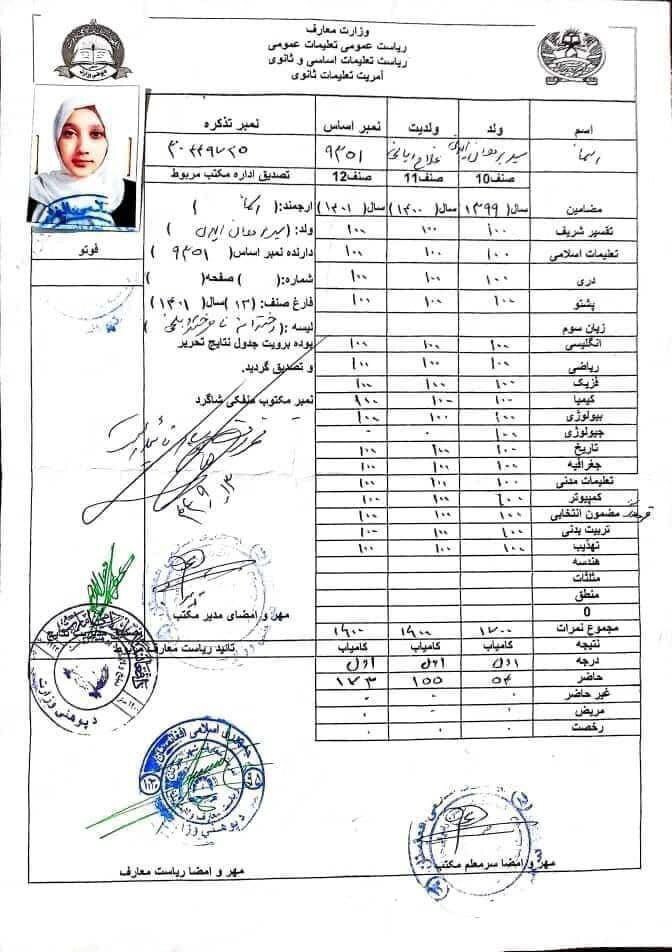 وزارت معارف
ریاست عمومی تعلیمات عمومی
ریاست تعلیمات اساسی و ثانوی
آمریت تعلیمات ثانوی
اسم ولد ولدیت نمبر اساس نمبر تذکره
اسما ۹۳۵۱
صنف10 صنف11 صنف12 تصدیق اداره مکتب مربوط
مضامین سال( ۱۳۹۹ سال( ۱۴۰۰ ) سال( ۱۴۰۱ ) ارجمند: ( اسما )
تفسیر شریف ۱۰۰ ۱۰۰ ۱۰۰ ولد: ( )
فوتو
تعلیمات اسلامی ۱۰۰ ۱۰۰ ۱۰۰ دارنده نمبر اساس( ۹۳۵۱ )
دری ۱۰۰ ۱۰۰ ۱۰۰ شماره: ( ) صفحه( )
پشتو ۱۰۰ ۱۰۰ ۱۰۰ فارغ صنف: (۱۲) سال( ۱۴۰۱ )
زبان سوم لیسه :( )
انگلیسی ۱۰۰ ۱۰۰ ۱۰۰ بوده برویت جدول نتایج تحریر
ریاضی ۱۰۰ ۱۰۰ ۱۰۰ و تصدیق گردید.
فزیک ۱۰۰ ۱۰۰ ۱۰۰
کیمیا ۱۰۰ ۱۰۰ ۱۰۰ نمبر مکتوب منفکی شاگرد
بیولوژی ۱۰۰ ۱۰۰ ۱۰۰
جیولوژی ۱۰۰ - -
تاریخ ۱۰۰ ۱۰۰ ۱۰۰
جغرافیه ۱۰۰ ۱۰۰ ۱۰۰
تعلیمات مدنی ۱۰۰ ۱۰۰ ۱۰۰
کمپیوتر ۱۰۰ ۱۰۰ ۱۰۰
مضمون انتخابی ۱۰۰ ۱۰۰ ۱۰۰
تربیت بدنی ۱۰۰ ۱۰۰ ۱۰۰
تهذیب ۱۰۰ ۱۰۰ ۱۰۰
هندسه
مثلثات
منطق
0
مهر و امضای مدیر مکتب
مجموع نمرات ۱۷۰۰ ۱۶۰۰ ۱۶۰۰
نتیجه کامیاب کامیاب کامیاب تائید ریاست معارف
درجه اول اول اول
حاضر ۵۴ ۱۵۵ ۱۷۳
غیر حاضر
مریض
رخصت
د پوهنې وزارت
جمهوری اسلامی افغانستان
مهر و امضا سرمعلم مکتب
مهر و امضا ریاست معارف